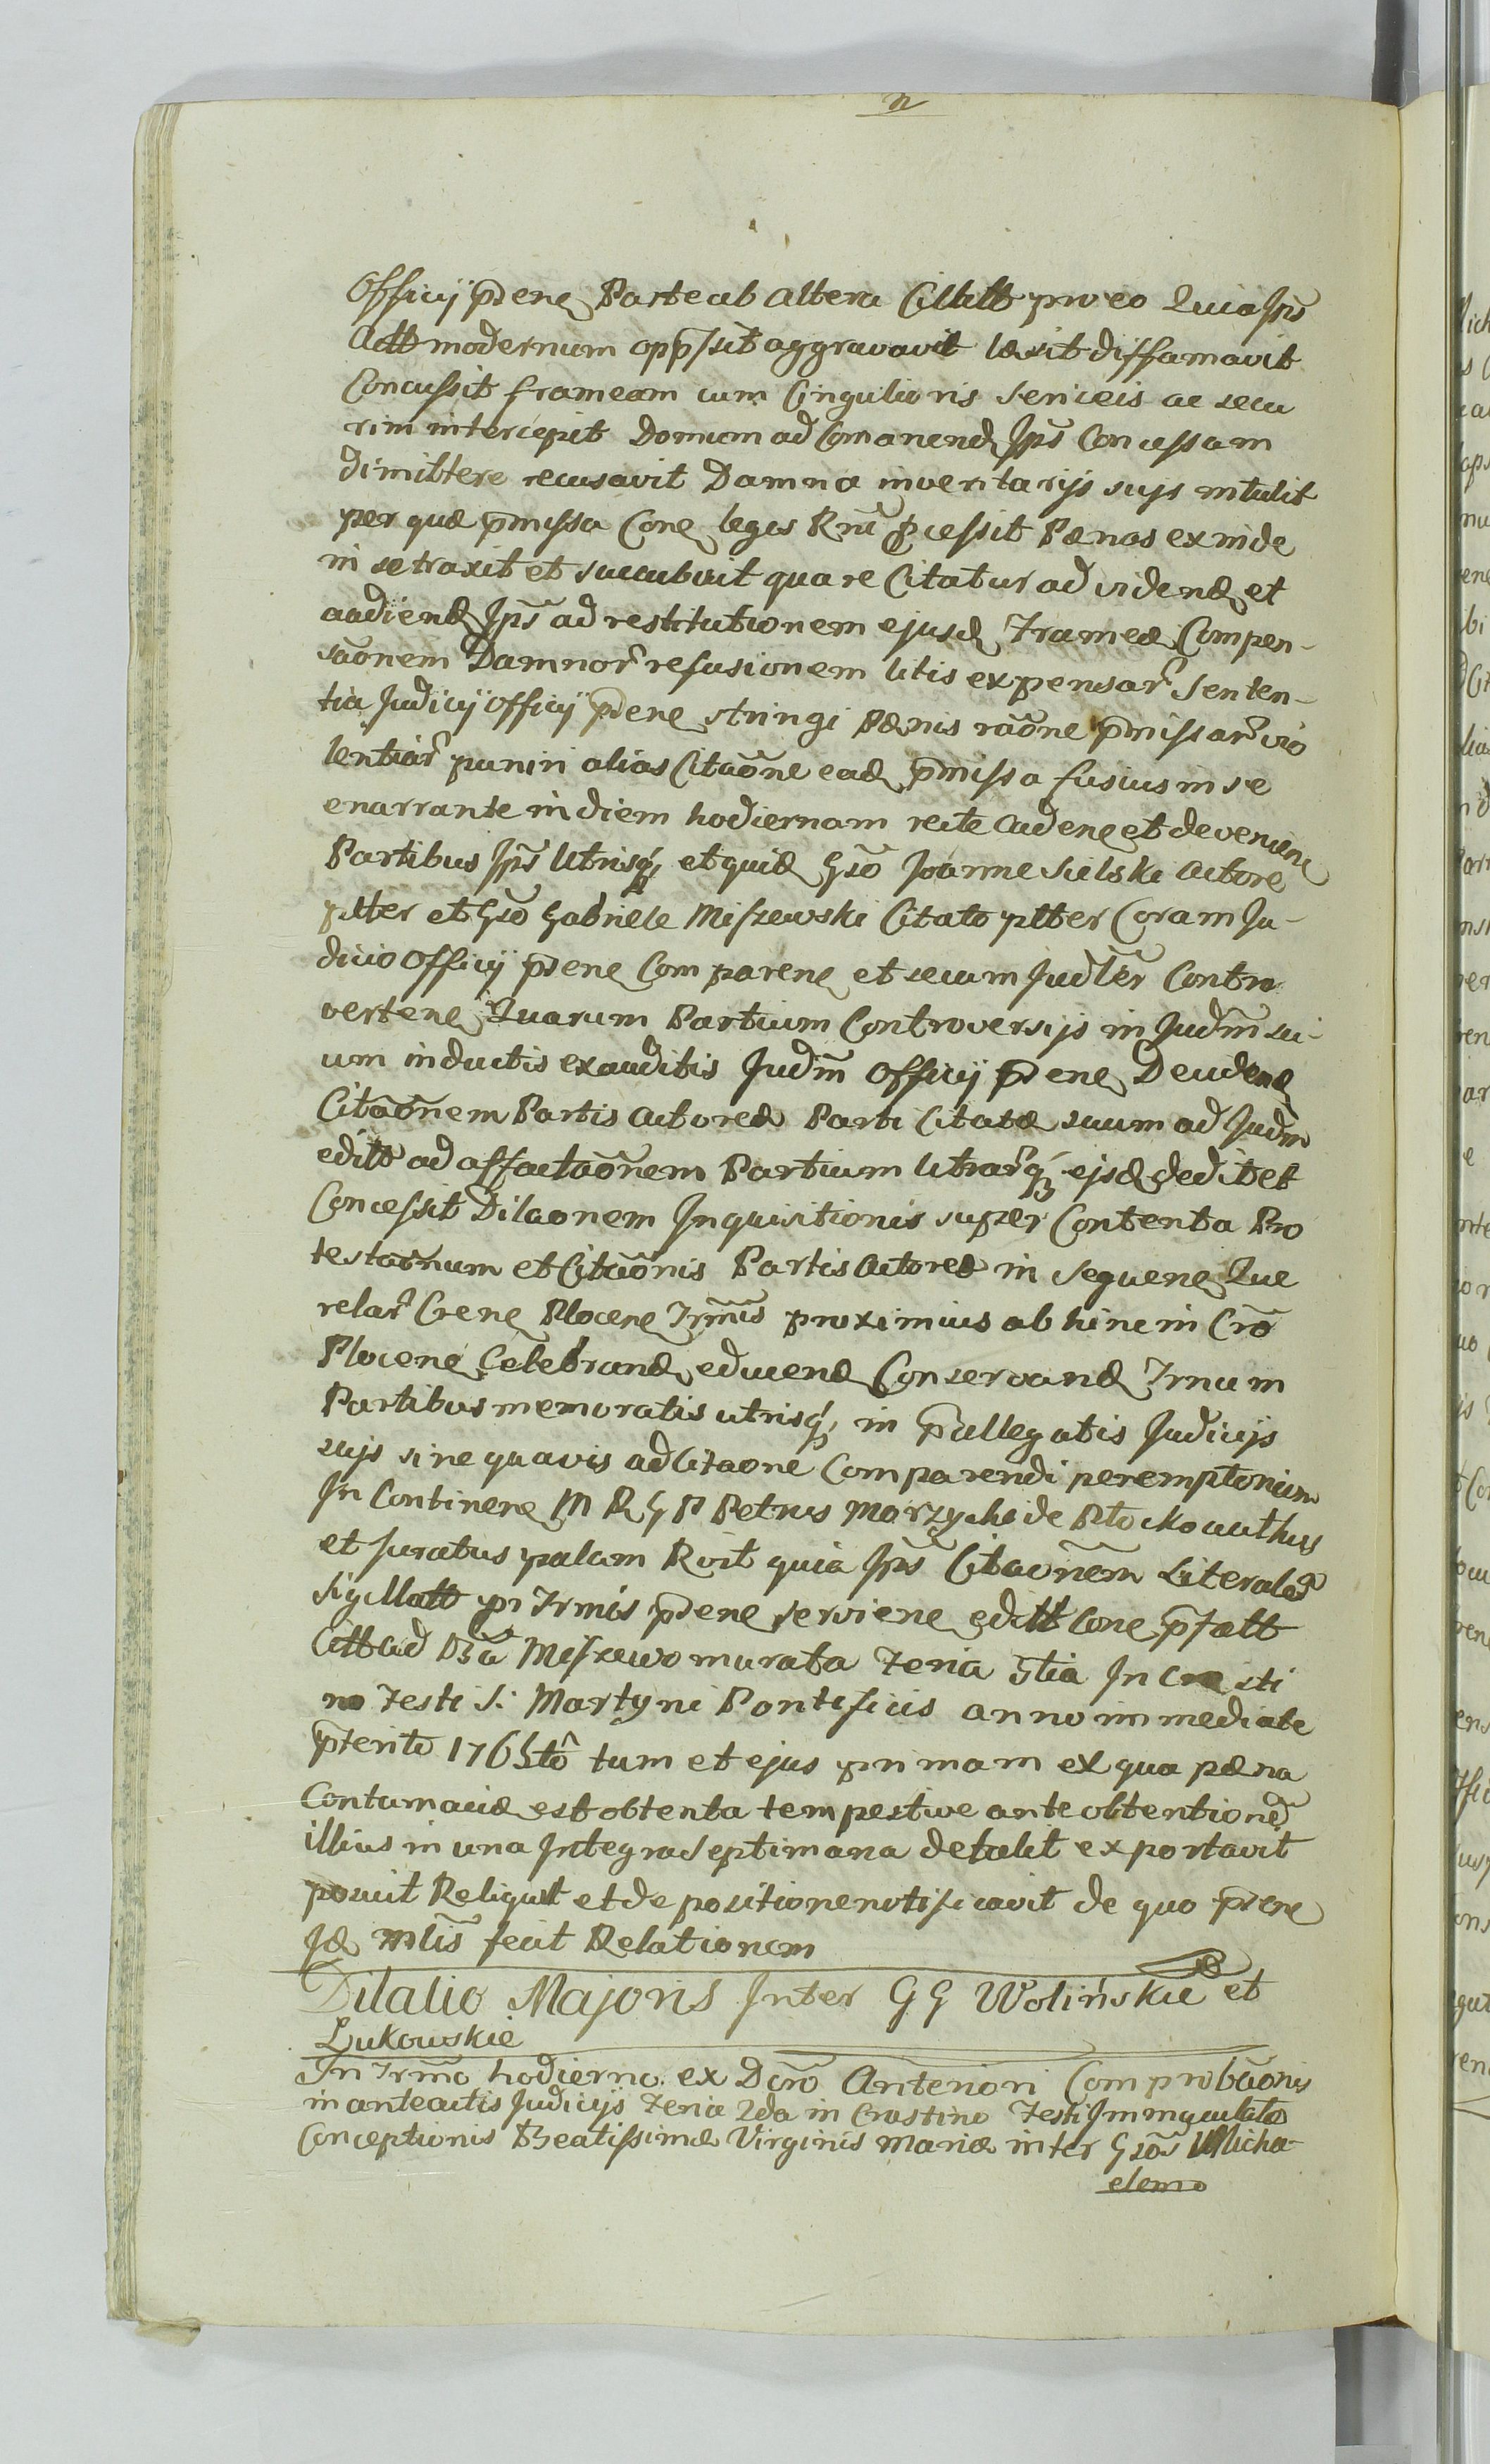 n
Officij pñsene Parte ab altera Citatt pro eo Quia Ips
Actt modernum opp̃ssit aggravavit læsit diffamavit
Concussit frameam cum Cingulis ris sericeis ac secu
rim intercepit Domum ad Comanend Ips Concessam
dimittere recusavit Damna inventarijs suijs intulit
per quæ p̃missa Cone leges Rni pcessit Pænas exinde
in se traxit et succubuit quare Citatur ad vidend et
audiend Ips ad restitutionem ejusd Frameæ Compen-
sãonem Damnor refusionem litis expensar Senten-
tia Judicij Officij p̃sene stringi Pænis raõne p̃missar vio
lentiar puniri alias Citaõne ead p̃missa fusius in se
enarrante in diem hodiernam recte Cadene et devenien
Partibus Ips Utrisq; et quid Gso Joanne Sielski Actore
pltter et Gso Gabriele Miszewski Citato pltter Coram Ju-
dicio Officij p̃sene Comparene et secum Judlter Contro
vertene Quarum Partium Controversijs in Judm su-
um inductis exauditis Judm Officij p̃sene Decidend
Citaõnem Partis Actoreæ Parti Citatæ suum ad Judm
editt ad affectaõnem Partium Utrarq; ejsd dedit et
Concessit Dilaonem Inquisitionis super Contenta Pro
testaõnum et Citaõnis Partis Actoreæ in Sequene Que
relar Crene Plocene Trmis proximius ab hinc in Cro
Plocene Celebrand educend Conservand Trnum
Partibus memoratis utrisq; in p̃allegatis Judicijs
suijs sine quavis adcitaone Comparendi peremptorium
In Continene M R G P Petrus Marzycki de Płocko authus
et Juratus palam Rvit quia Ips Citaõnem Literaleṁ
Sigillatt pr Trmis p̃sene serviene editt Cone p̃fatt
Citt ad Bã Miszewo murata Feria 5tia In Crasti
no Festi S: Martyni Pontificis anno immediate
p̃terito 1765to tum et ejus primam ex qua pæna
Contumaciæ est obtenta tempestive ante obtentionẽ
illius in una Integra Septimana detulit exportavit
posuit Reliquit et de positione notificavit de quo p̃sene
Id mlis fecit Relationem
Dilatio Majoris Inter GG Wolińskie et
Łukowskie
In Trmo hodierno ex Dcro Anteriori Comprobaõnis
in anteactis Judicijs Feria 2da in Crastino Festi Immaculatæ
Conceptionis Beatissimæ Virginis Mariæ inter Gsos Micha-
elemo